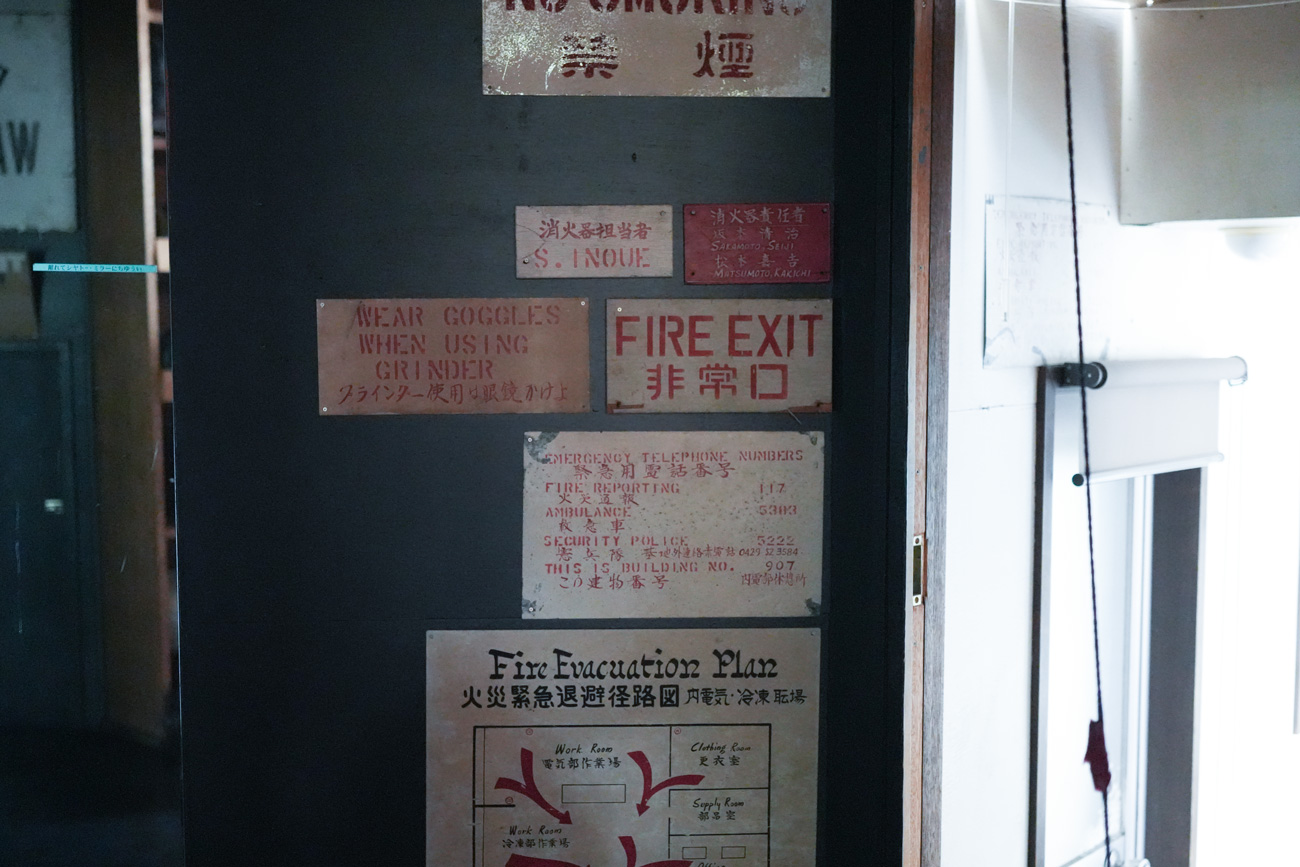 NO SMOKING
禁 煙
AW
消火器担当者
S. INOUE
消火器責任者
坂本清治
SAKAMOTO, SEIJI
松本嘉吉
MATSUMOTO, KAKICHI
WEAR GOGGLES
WHEN USING
GRINDER
グラインダー使用は眼鏡かけよ
FIRE EXIT
非常口
EMERGENCY TELEPHONE NUMBERS
緊急用電話番号
FIRE REPORTING 117
火災通報
AMBULANCE
救急車
SECURITY POLICE 5222
憲兵隊 基地外連絡末電話 0429 52 3584
THIS IS BUILDING NO. 907
この建物番号 内電部休憩所
Fire Evacuation Plan
火災緊急退避径路図 内電気・冷凍職場
Work Room
電気部作業場
Clothing Room
更衣室
Supply Room
部品室
Work Room
冷凍部作業場
Office